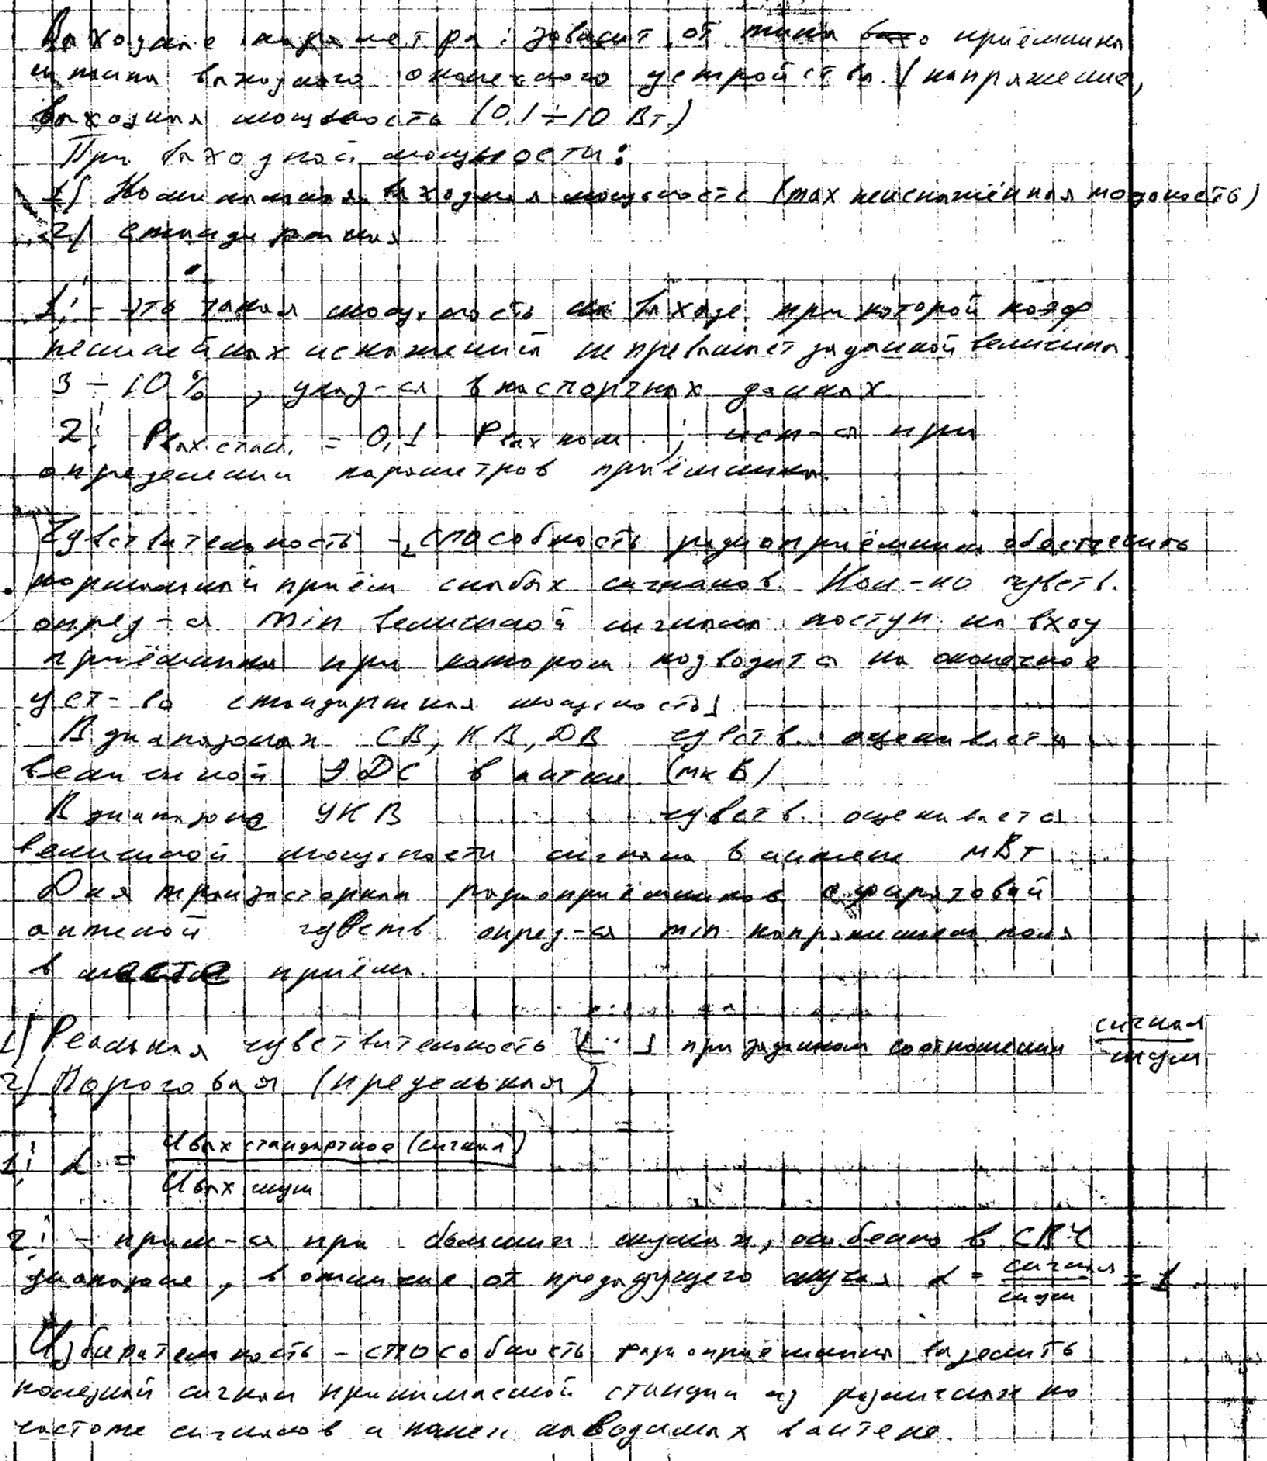 Выходные параметры: зависит от типа приёмника
и типа выходного оконечного устройства. (напряжение,
выходная мощность (0,1 ÷ 10 Вт)
При выходной мощности:
1) Номинальная выходная мощность (max неискажённая мощность)
2) стандартная
1: - это такая мощность на выходе при которой коэф
нелинейных искажений не превышает заданной величины
3 ÷ 10 % , указ-ся в паспортных данных
2: Pвых.стан. = 0,1 Pвых ном. ; исп-ся при
определении параметров приёмника.
Чувствительность - способность радиоприёмника обеспечить
нормальный приём слабых сигналов. Кол-но чувств.
опред-ся min величиной сигнала поступ. на вход
приёмника при котором подводится на оконечное
уст-во стандартная мощность
В диапазонах СВ, КВ, ДВ чувств. оценивается
величиной ЭДС в антене (мкВ)
В диапазоне УКВ чувств. оценивается
величиной мощности сигнала в антене мВт
Для транзисторных радиоприёмников с ферритовой
антеной чувств. опред-ся min напряжением поля
в месте приёма.
1) Реальная чувствительность при заданном соотношении сигнал/шум
2) Пороговая (предельная)
1: α = Uвых стандартное (сигнал) / Uвых шум
2: - прим-ся при больших шумах, особенно в СВЧ
диапазоне, в отличие от предыдущего случая α = сигнал/шум = 1
Избирательность - способность радиоприёмника выделить
полезный сигнал принимаемой станции из различных по
частоте сигналов и помех наводимых в антене.